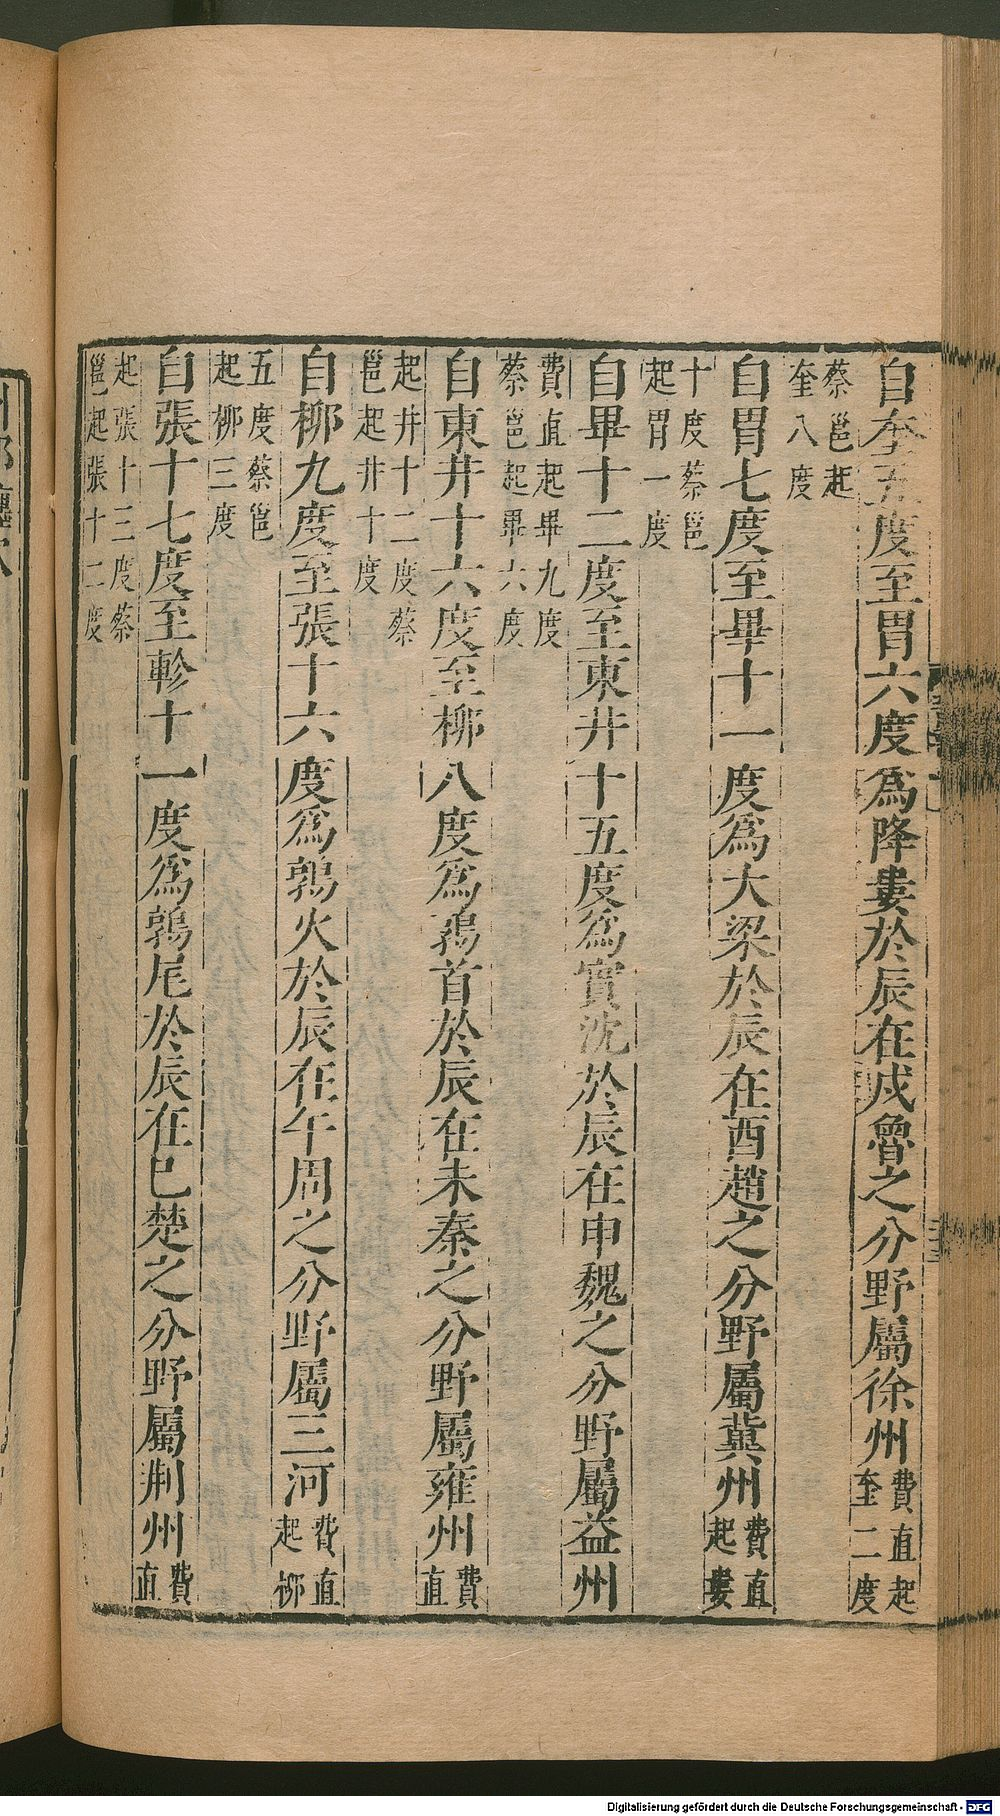 自奎五度至胃六度爲降婁於辰在戍魯之分野屬徐州費直起
奎二度
蔡邕起
奎八度
自胃七度至畢十一度爲大梁於辰在酉趙之分野屬冀州費直
起婁
十度蔡邕
起胃一度
自畢十二度至東井十五度爲實沈於辰在申魏之分野屬益州
費直起畢九度
蔡邕起畢六度
自東井十六度至柳八度爲鶉首於辰在未秦之分野屬雍州費
直
起井十二度蔡
邕起井十度
自柳九度至張十六度爲鶉火於辰在午周之分野屬三河費直
起柳
五度蔡邕
起柳三度
自張十七度至軫十一度爲鶉尾於辰在巳楚之分野屬荆州費
直
起張十三度蔡
邕起張十二度
Digitalisierung gefördert durch die Deutsche Forschungsgemeinschaft - DFG